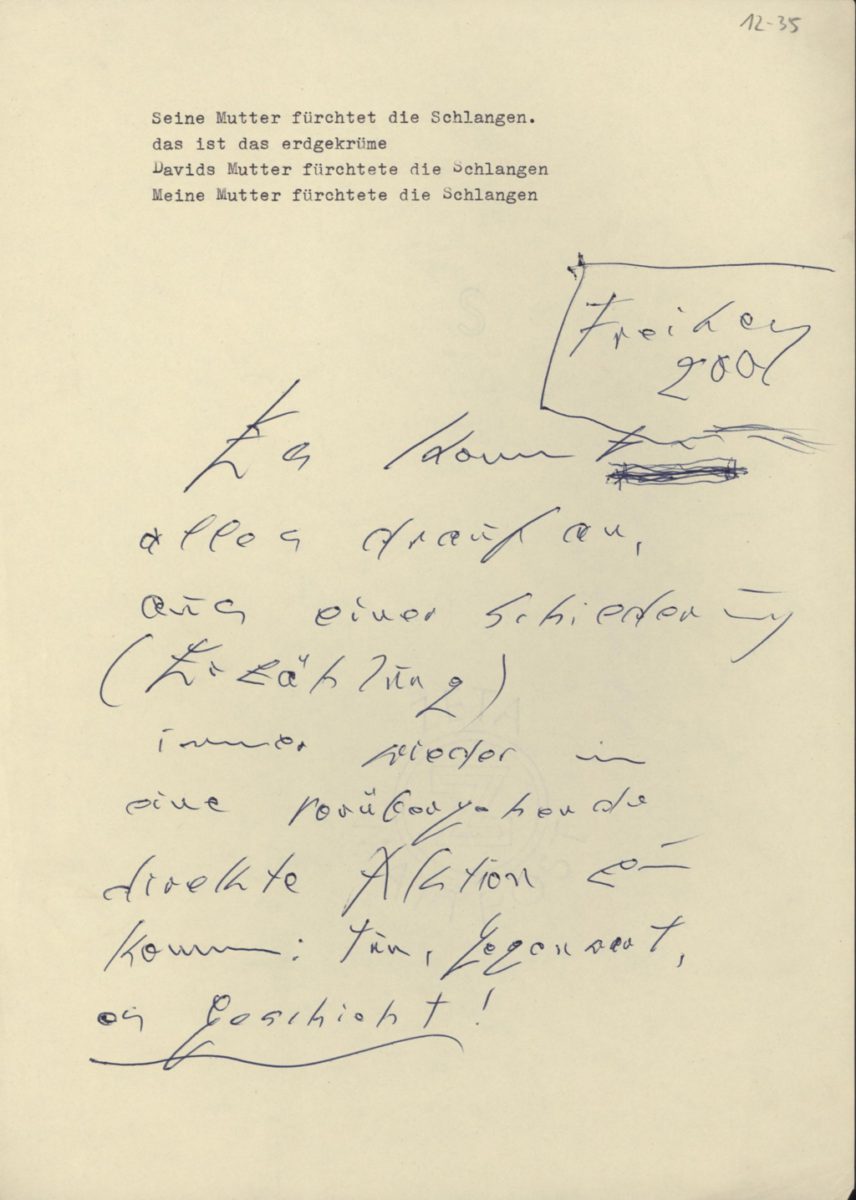 12-35
Seine Mutter fürchtet die Schlangen.
das ist das erdgekrüme
Davids Mutter fürchtete die Schlangen
Meine Mutter fürchtete die Schlangen
2001
Es kommt
alles drauf an,
aus einer
(Erzählung)
immer wieder in
eine vorübergehende
direkte Aktion zu
kommen: tun, Gegenwart,
es geschieht!